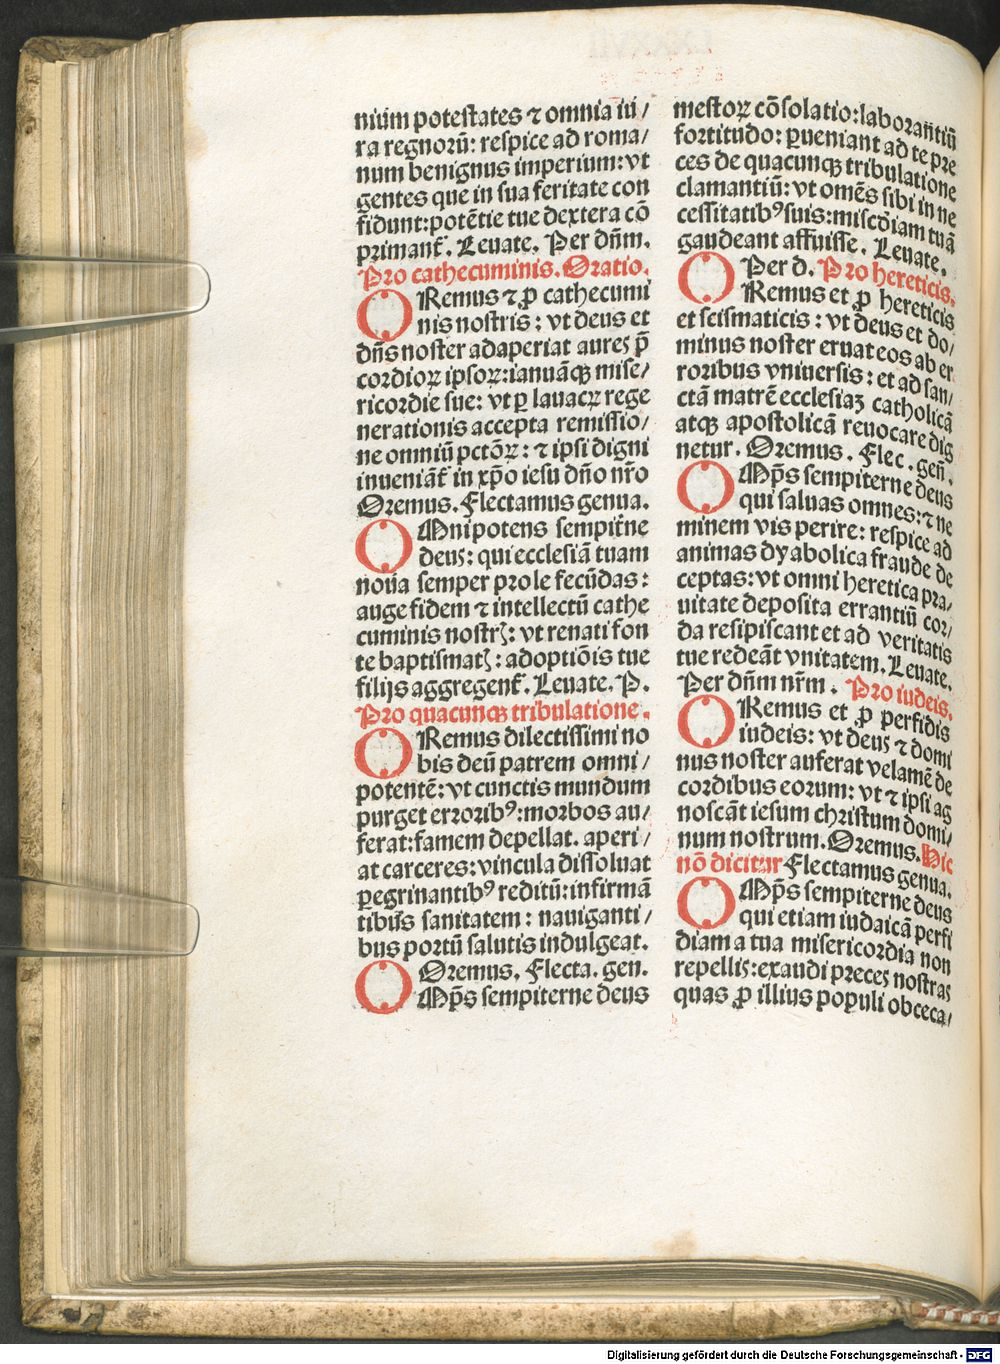 nium potestates ⁊ omnia iu/
ra regnorū: respice ad roma/
num benignus imperium: vt
gentes que in sua feritate con
fidunt: potētie tue dextera cō
primant᷑. Leuate. Per dn̄m.
Pro cathecuminis. Oratio.
ORemus ⁊ ꝓ cathecumi
nis nostris: vt deus et
dn̄s noster adaperiat aures p̄
cordioꝝ ipsoꝝ: ianuāqꝫ mise/
ricordie sue: vt ꝑ lauacꝝ rege
nerationis accepta remissio/
ne omniū pctōꝝ: ⁊ ipsi digni
inueniāt᷑ in xp̄o iesu dn̄o nr̄o
Oremus. Flectamus genua.
OMnipotens sempit̄ne
deus: qui ecclesiā tuam
noua semper prole fecūdas:
auge fidem ⁊ intellectū cathe
cuminis nostrꝭ: vt renati fon
te baptismatꝭ: adoptiōis tue
filijs aggregent᷑. Leuate. P.
Pro quacunqꝫ tribulatione.
ORemus dilectissimi no
bis deū patrem omni/
potentē: vt cunctis mundum
purget erroribꝰ: morbos au/
ferat: famem depellat. aperi/
at carceres: vincula dissoluat
ꝑegrinantibꝰ reditū: infirmā
tibus sanitatem: nauiganti/
bus portū salutis indulgeat.
Oremus. Flecta. gen.
OMp̄s sempiterne deus
mestoꝝ cōsolatio: laborantiū
fortitudo: ꝑueniant ad te pre
ces de quacunqꝫ tribulatione
clamantiū: vt omēs sibi in ne
cessitatibꝰ suis: miscdiam tuā
gaudeant affuisse. Leuate.
Per d. Pro hereticis.
ORemus et ꝓ hereticis
et scismaticis: vt deus et do/
minus noster eruat eos ab er
roribus vniuersis: et ad san/
ctā matrē ecclesiaꝫ catholicā
atqꝫ apostolicā reuocare dig
netur. Oremus. Flec. gen̄.
OMp̄s sempiterne deus
qui saluas omnes: ⁊ ne
minem vis perire: respice ad
animas dyabolica fraude de
ceptas: vt omni heretica pra/
uitate deposita errantiū cor/
da resipiscant et ad veritatis
tue redeāt vnitatem. Leuate.
Per dn̄m nr̄m. Pro iudeis.
ORemus et ꝓ perfidis
iudeis: vt deus ⁊ domi
nus noster auferat velamē de
cordibus eorum: vt ⁊ ipsi ag
noscāt iesum christum domi/
num nostrum. Oremus. Hic
nō dicitur Flectamus genua.
OMp̄s sempiterne deus
qui etiam iudaicā perfi
diam a tua misericordia non
repellis: exaudi preces nostras
quas ꝓ illius populi obceca/
Digitalisierung gefördert durch die Deutsche Forschungsgemeinschaft - DFG